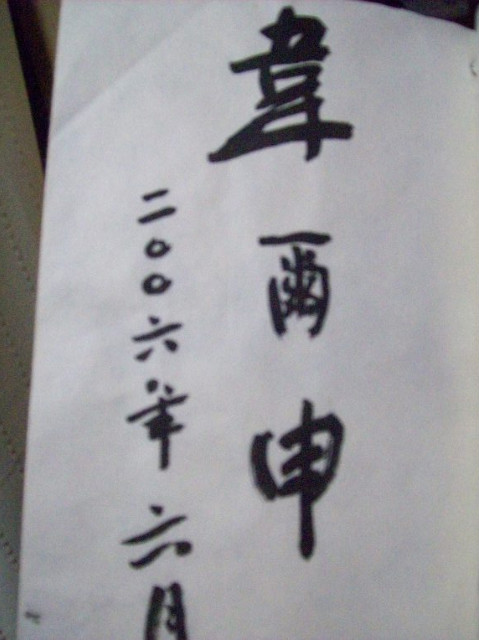 韋爾申
二〇〇六年六月